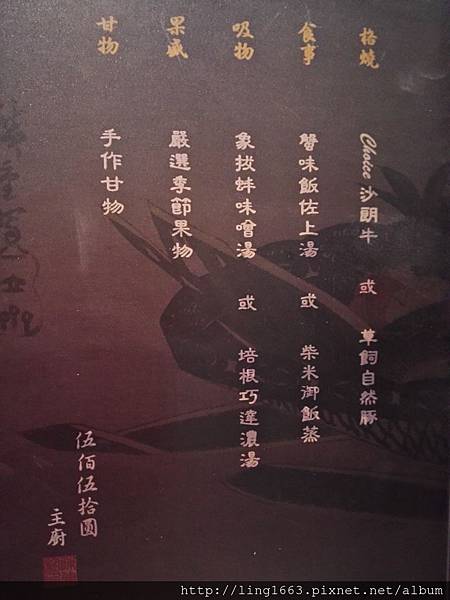 格燒
Choice 沙朗牛 或 草飼自然豚
食事
蟹味飯佐上湯 或 柴米御飯蒸
吸物
象拔蚌味噌湯 或 培根巧達濃湯
果盛
嚴選季節果物
甘物
手作甘物
伍佰伍拾圓
主廚
http://ling1663.pixnet.net/album